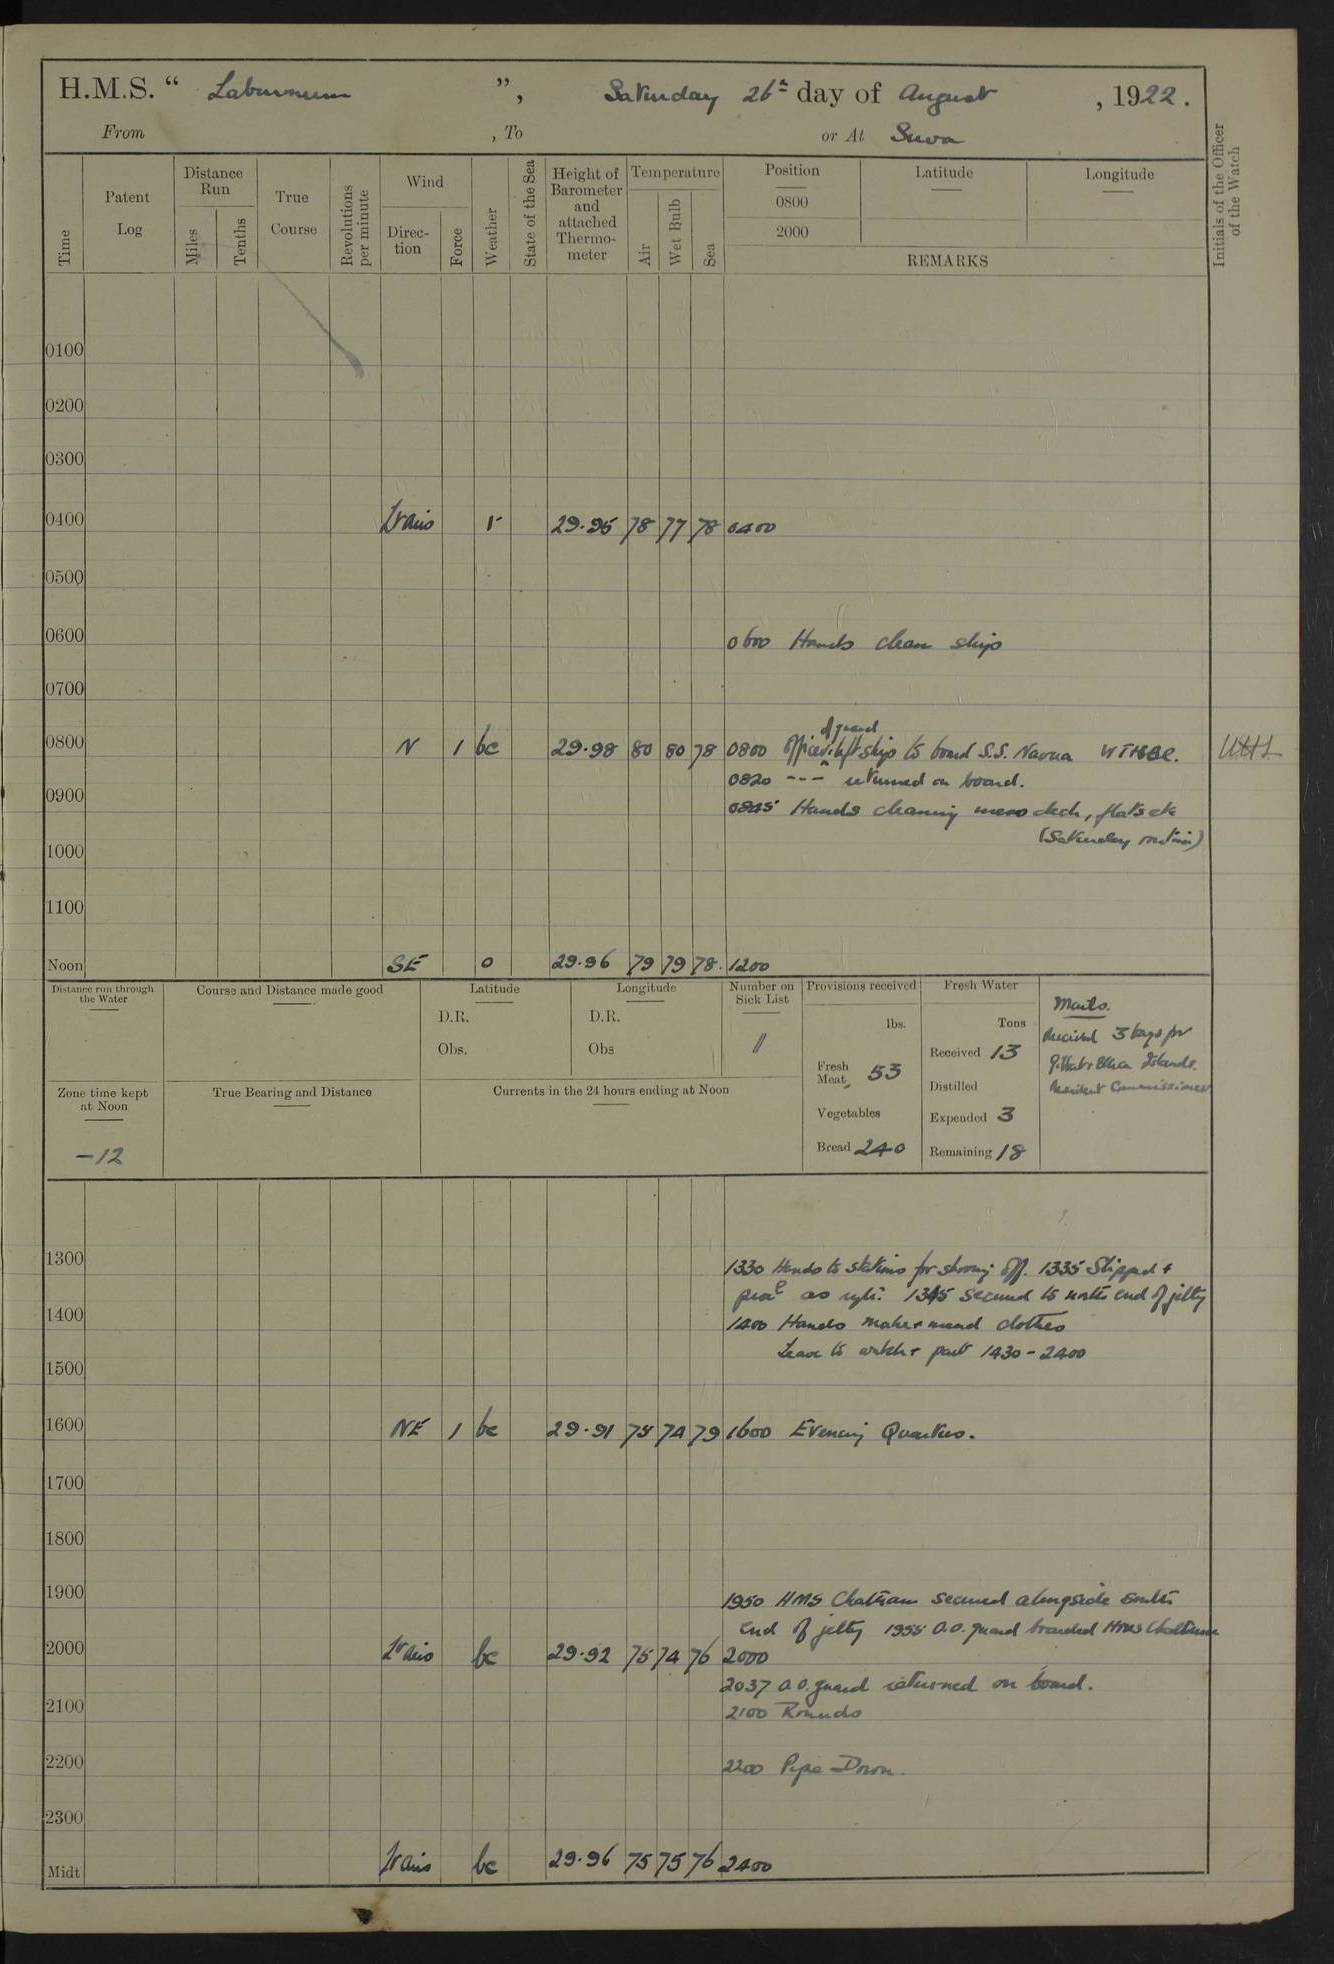 H.M.S. “ Laburnum ”, Saturday 26th day of August, 1922.
From , To or At Suva
Time
Patent Log
Distance Run
Miles
Tenths
True Course
Revolutions per minute
Wind
Direction
Force
Weather
State of the Sea
Height of Barometer and attached Thermometer
Temperature
Air
Wet Bulb
Sea
Position
0800
2000
Latitude
Longitude
REMARKS
Initials of the Officer of the Watch
0100
0200
0300
0400 Vrais r 29.95 78 77 78 0400
0500
0600 0600 Hands clean ship
0700
of guard
0800 N 1 bc 29.98 80 80 78 0800 Officer left ship to board S.S. Navua
0820 --- returned on board.
0900
0845 Hands cleaning mess deck, flats etc
(Saturday routine)
1000
1100
Noon SE 0 29.96 79 79 78. 1200
Distance run through the Water
Course and Distance made good
Latitude
D.R.
Obs.
Longitude
D.R.
Obs
Number on Sick List
11
Provisions received
lbs.
Fresh Meat, 53
Vegetables
Bread 240
Fresh Water
Tons
Received 13
Distilled
Expended 3
Remaining 18
Mails.
Received 3 bags for
Gilbert & Ellice Islands.
Resident Commissioner
Zone time kept at Noon
-12
True Bearing and Distance
Currents in the 24 hours ending at Noon
1300
1330 Hands to stations for shoving off. 1335 Slipped &
procd as req. 1345 secured to north end of jetty
1400 1400 Hands make & mend clothes
Leave to watch & part 1430-2400
1500
1600 NE 1 bc 29.91 75 74 79 1600 Evening Quarters.
1700
1800
1900
1950 HMS Chatham secured alongside south
end of jetty 1955 O.O. guard boarded HMS Chatham
2000 Vrais bc 29.92 75 74 76 2000
2037 O.O. guard returned on board.
2100 2100 Rounds
2200 2200 Pipe Down.
2300
Midt Vrais bc 29.96 75 75 76 2400